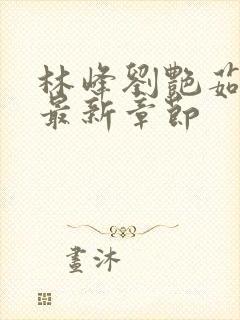 林峰劉艷茹
最新章節
畫沐